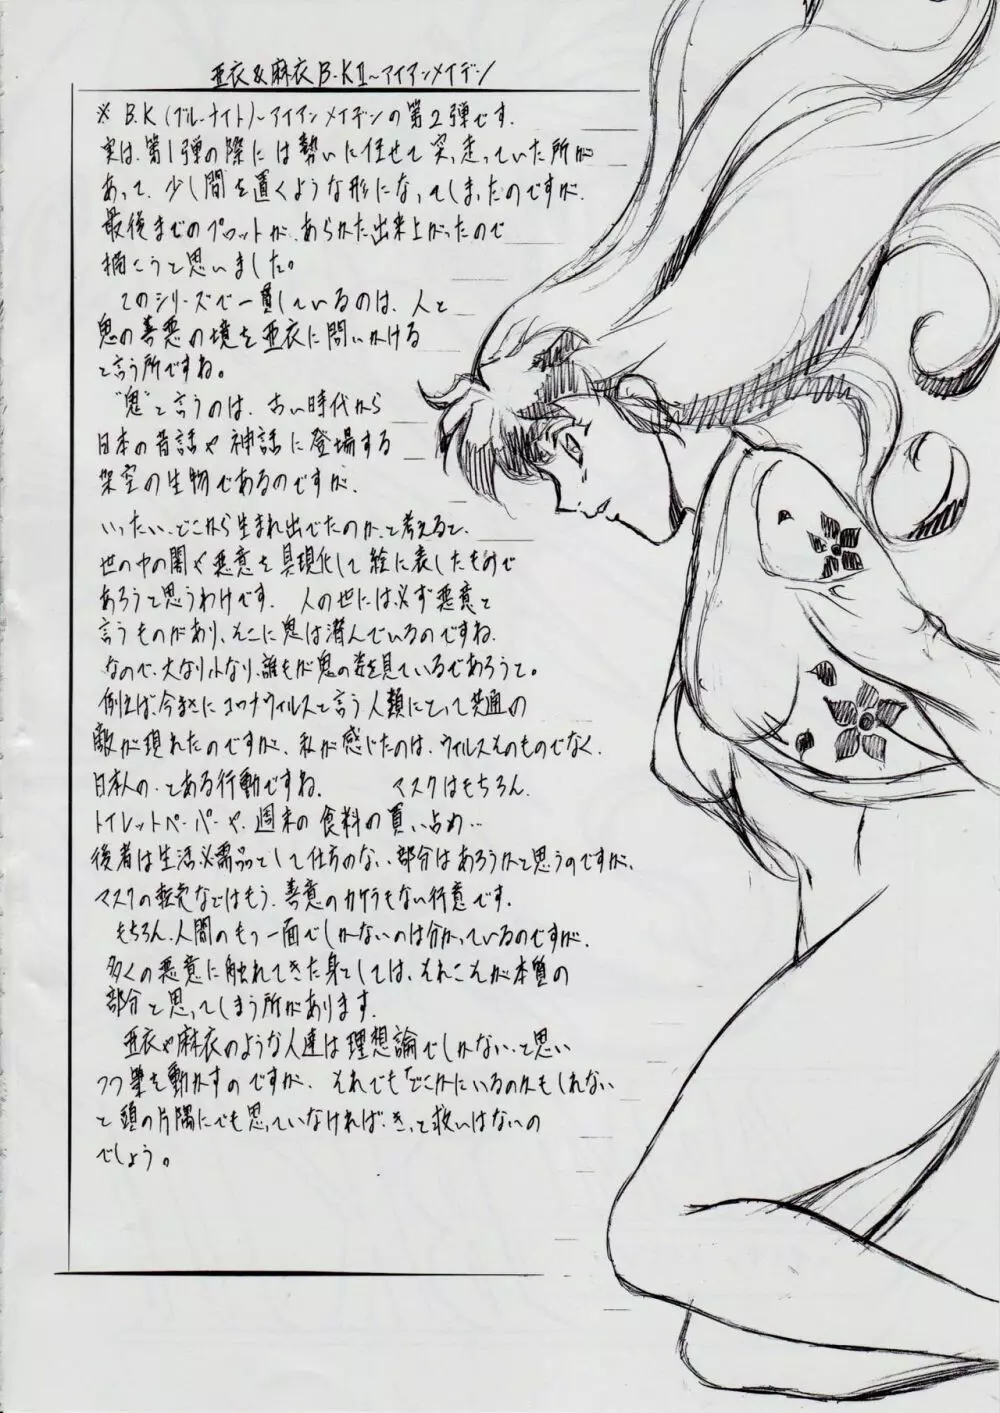 亜衣&麻衣 B.KⅡ～アイアンメイデン
※ B.K(ブルーナイト)～アイアンメイデンの第2弾です.
実は、第1弾の際には勢いに任せて突っ走っていた所が
あって、少し間を置くような形になってしまったのですが、
最後までのプロットが、あらかた出来上がったので
描こうと思いました。
このシリーズで一貫しているのは、人と
鬼の善悪の境を亜衣に問いかける
と言う所ですね。
"鬼"と言うのは、古い時代から
日本の昔話や神話に登場する
架空の生物であるのですが、
いったい、どこから生まれ出でたのか、と考えると、
世の中の闇や悪意を具現化して絵に表したもので
あろうと思うわけです. 人の世には必ず悪意と
言うものがあり、そこに鬼は潜んでいるのですね.
なので、大なり小なり、誰もが鬼の姿を見ているであろうと。
例えば、今まさにコロナウィルスと言う人類にとって共通の
敵が現れたのですが、私が感じたのは、ウィルスそのものでなく、
日本人の、とある行動ですね. マスクはもちろん、
トイレットペーパーや、週末の食料の買い占め…
後者は生活必需品として仕方のない部分はあろうかと思うのですが、
マスクの転売などはもう、善意のカケラもない行意です.
もちろん、人間のもつ一面でしかないのは分かっているのですが、
多くの悪意に触れてきた身としては、それこそが本質の
部分と思ってしまう所があります.
亜衣や麻衣のような人達は理想論でしかない、と思い
つつ筆を動かすのですが、それでも「どこかにいるのかもしれない
と頭の片隅にでも思っていなければ、きっと救いはないの
でしょう。